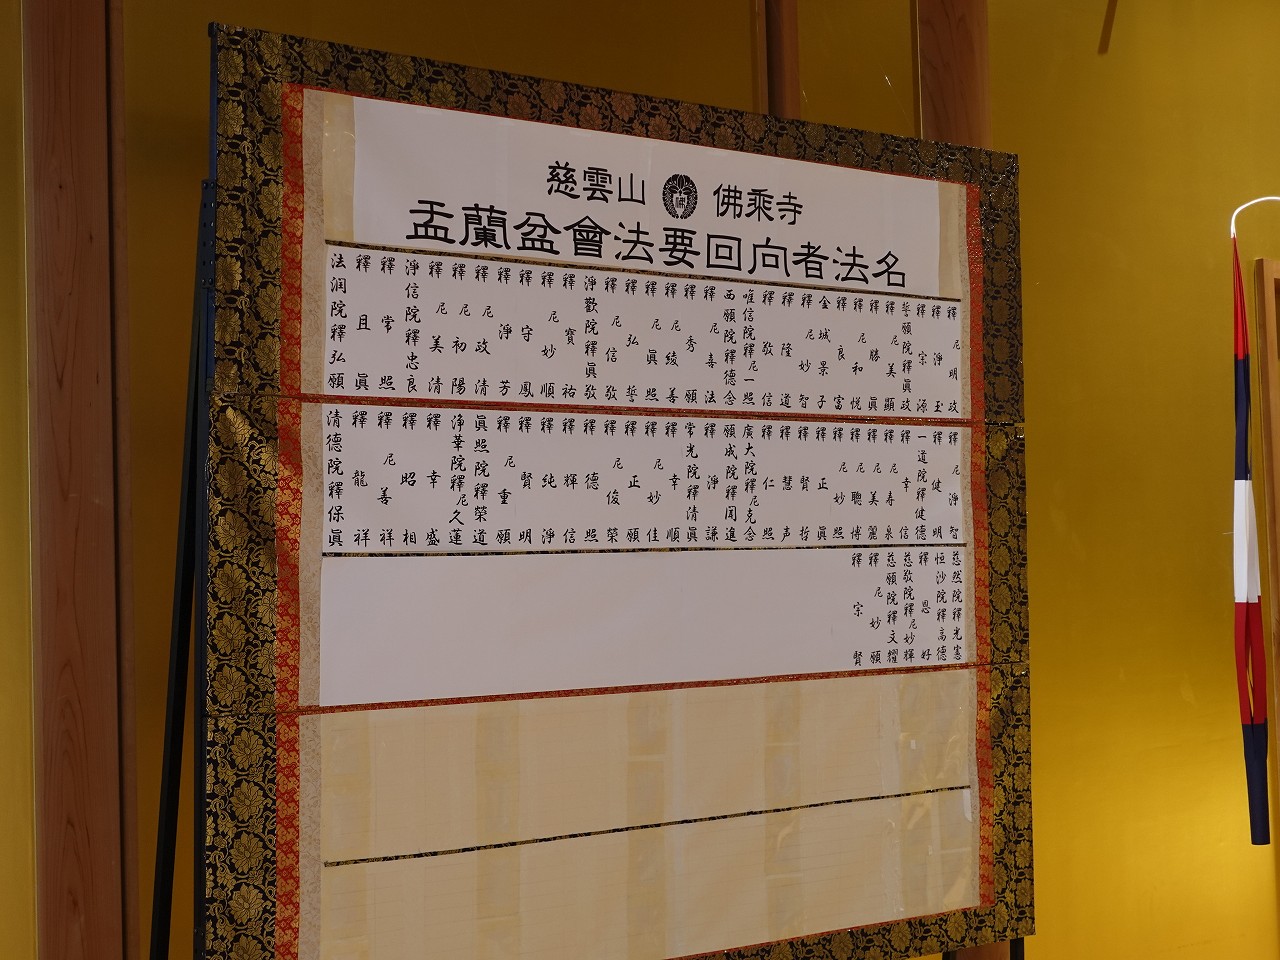 慈雲山 佛 佛乘寺
盂蘭盆會法要回向者法名
釋尼明政
釋淨玉
釋宗源
誓願院釋眞政
釋尼美顯
釋勝眞
釋尼和悦
釋良富
金城景子
釋尼妙智
釋隆道
釋敬信
唯信院釋尼一照
西願院釋德念
釋尼喜法
釋秀願
釋尼綾善
釋尼眞照
釋弘誓
釋尼信敬
淨歡院釋眞敬
釋寶祐
釋尼妙順
釋守鳳
釋淨芳
釋尼政清
釋尼初陽
釋尼美清
淨信院釋忠良
釋常照
釋且眞
法潤院釋弘願
釋尼淨智
釋健明
一道院釋健德
釋幸信
釋尼寿泉
釋尼美麗
釋尼聰博
釋尼妙照
釋正眞
釋賢哲
釋慧声
釋仁照
廣大院釋尼克念
願成院釋聞進
釋淨謙
常光院釋清眞
釋幸順
釋尼妙佳
釋正願
釋尼俊榮
釋德照
釋輝信
釋純淨
釋賢明
釋尼重願
眞照院釋榮道
浄華院釋尼久蓮
釋幸盛
釋昭相
釋尼善祥
釋龍祥
清德院釋保眞
慈然院釋光憲
恒沙院釋高德
釋恩好
慈敬院釋尼妙輝
慈願院釋文耀
釋尼妙願
釋宗賢